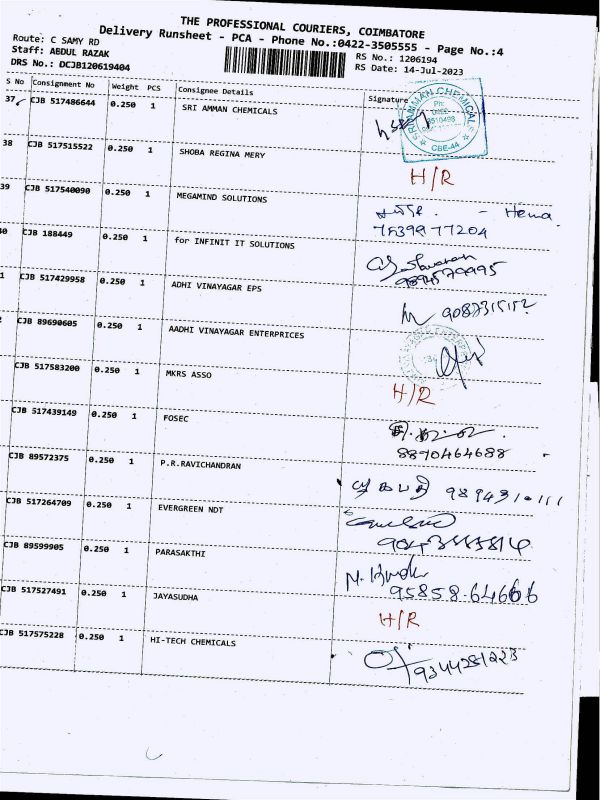 THE PROFESSIONAL COURIERS, COIMBATORE
Delivery Runsheet - PCA - Phone No.:0422-3505555 - Page No.:4
Route: C SAMY RD
RS No.: 1206194
Staff: ABDUL RAZAK
RS Date: 14-Jul-2023
DRS No.: DCJB120619404
S No Consignment No Weight PCS Consignee Details Signature
37 CJB 517486644 0.250 1 SRI AMMAN CHEMICALS
SRI AMMAN CHEMICALS Ph: CBE-44
38 CJB 517515522 0.250 1 SHOBA REGINA MERY H/R
39 CJB 517540090 0.250 1 MEGAMIND SOLUTIONS - Hema
7539977204
40 CJB 188449 0.250 1 for INFINIT IT SOLUTIONS
9894579995
1 CJB 517429958 0.250 1 ADHI VINAYAGAR EPS 9087315152
CJB 89690605 0.250 1 AADHI VINAYAGAR ENTERPRICES
CJB 517583200 0.250 1 MKRS ASSO H/R
CJB 517439149 0.250 1 FOSEC
8870464688
CJB 89572375 0.250 1 P.R.RAVICHANDRAN
CJB 517264709 0.250 1 EVERGREEN NDT
CJB 89599905 0.250 1 PARASAKTHI
95858-64666
CJB 517527491 0.250 1 JAYASUDHA H/R
CJB 517575228 0.250 1 HI-TECH CHEMICALS 9344281223